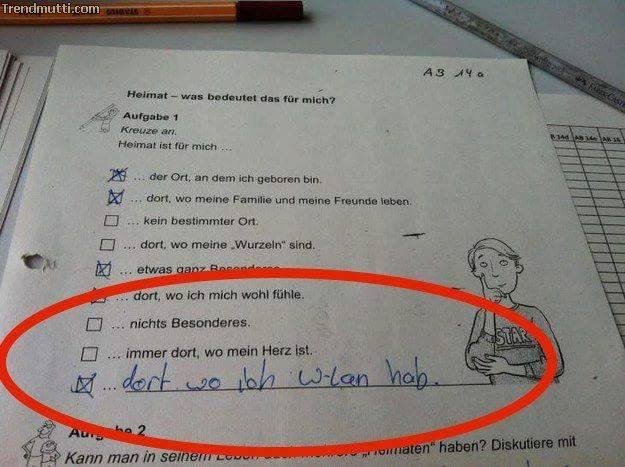 Trendmutti.com
STABILO
AB 14 a
Heimat – was bedeutet das für mich?
Aufgabe 1
Kreuze an.
Heimat ist für mich ...
... der Ort, an dem ich geboren bin.
... dort, wo meine Familie und meine Freunde leben.
... kein bestimmter Ort.
... dort, wo meine „Wurzeln“ sind.
... etwas ganz Besonderes
... dort, wo ich mich wohl fühle.
... nichts Besonderes.
... immer dort, wo mein Herz ist.
... dort wo ich w-lan hab.
STAR
Aufgabe 2
Kann man in seinem haben? Diskutiere mit